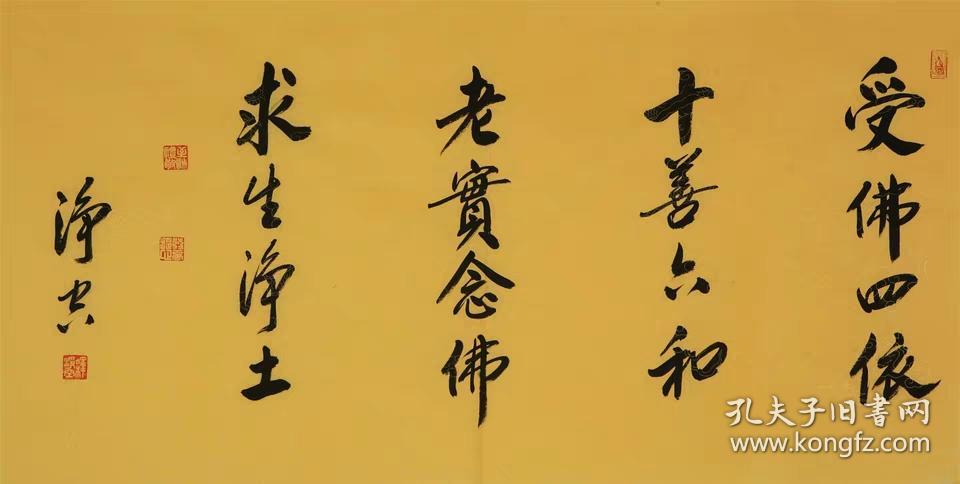 受佛四依
十善六和
老實念佛
求生淨土
淨空
孔夫子旧書网
www.kongfz.com